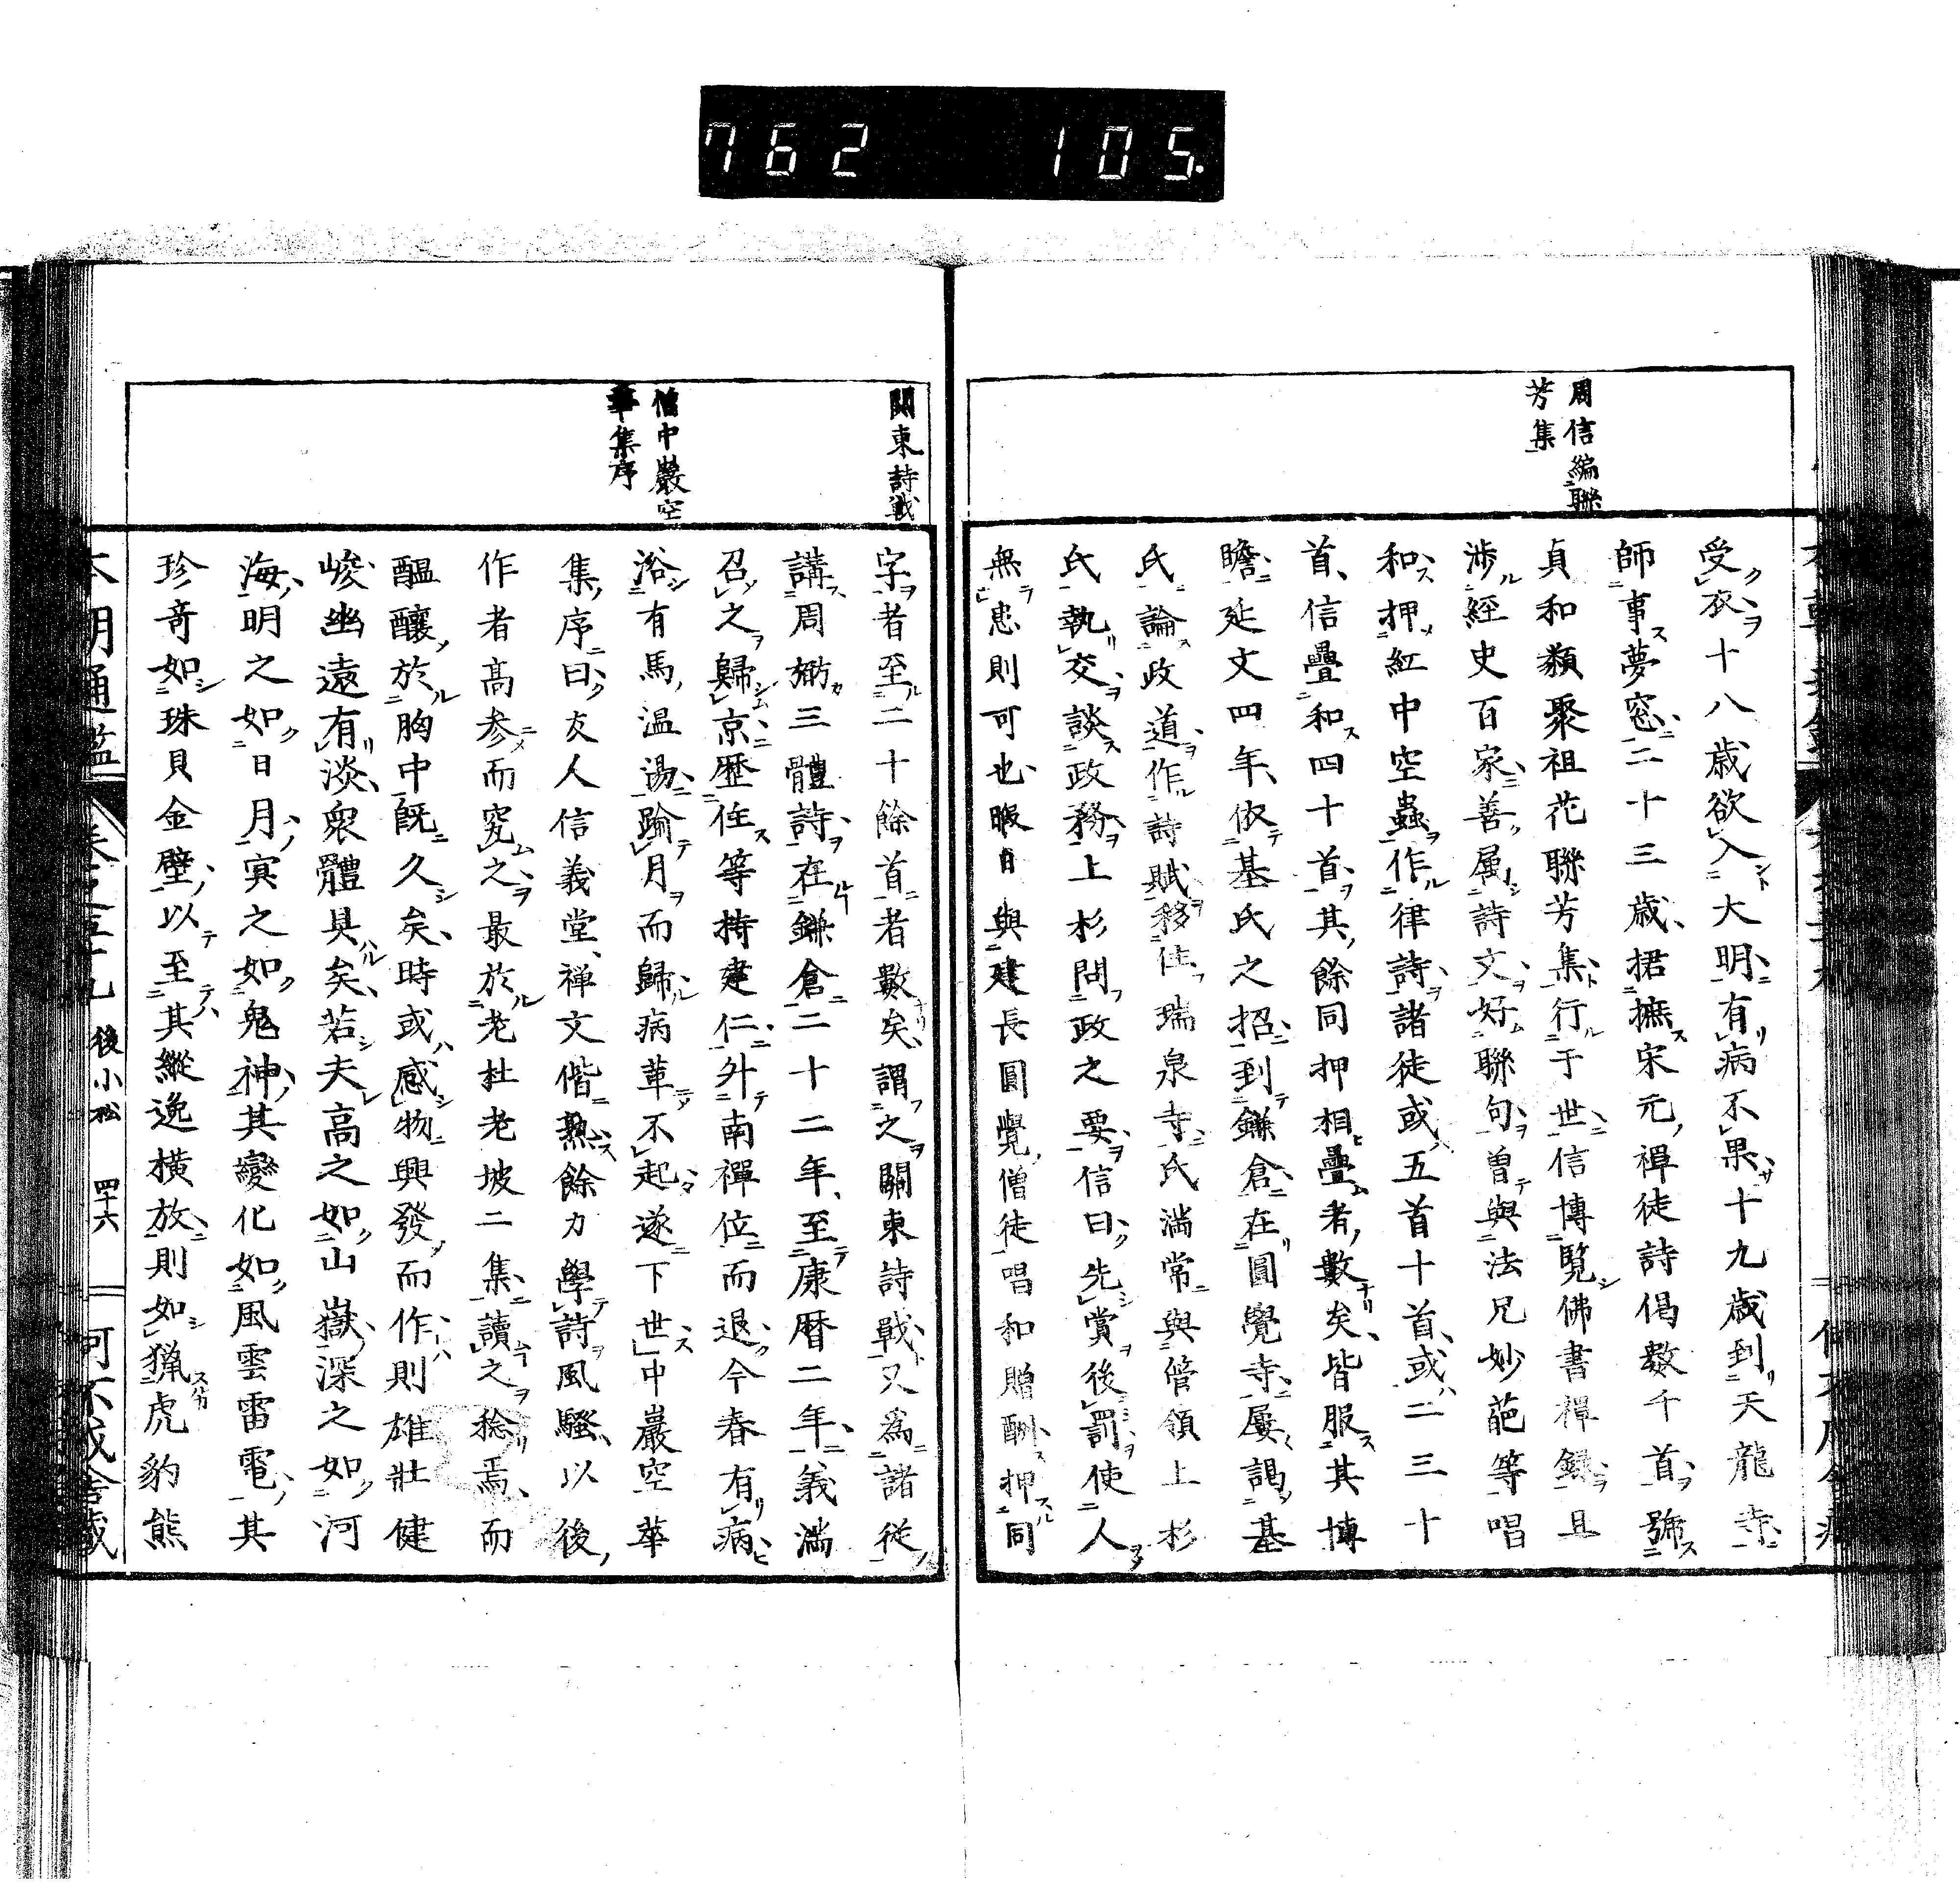 762 105.
周信編聯
芳集
受衣十八歳欲入大明有病不果十九歳到天龍寺
師事夢窓二十三歳捃摭宋元禅徒詩偈數千首號
貞和類聚祖花聯芳集行于世信博覧佛書禅録且
渉經史百家善属詩文好聯句曽與法兄妙葩等唱
和押紅中空蟲作律詩諸徒或五首十首或二三十
首信疊和四十首其餘同押相疊者數矣皆服其博
瞻延文四年依基氏之招到鎌倉在圓覺寺屢謁基
氏論政道作詩賦移住瑞泉寺氏満常與管領上杉
氏執交談政務上杉問政之要信曰先賞後罰使人
無恚則可也暇日與建長圓覺僧徒唱和贈酬押同
關東詩戦
僧中巖空
華集序
字者至二十餘首者數矣謂之關東詩戰又為諸徒
講周弼三體詩在鎌倉二十二年至康暦二年義満
召之歸京歴住等持建仁外南禪位而退今春有病
浴有馬温湯踰月而歸病革不起遂下世中巖空華
集序曰友人信義堂禅文偕熟餘力學詩風騒以後
作者高参而究之最於老杜老坡二集讀之稔焉而
醞釀於胸中既久矣時或感物興發而作則雄壯健
峻幽遠有淡衆體具矣若夫高之如山嶽深之如河
海明之如日月寅之如鬼神其變化如風雲雷電其
珍奇如珠貝金璧以至其縱逸横放則如猟虎豹熊
本朝通鑑 卷之五十九 後小松 四十六